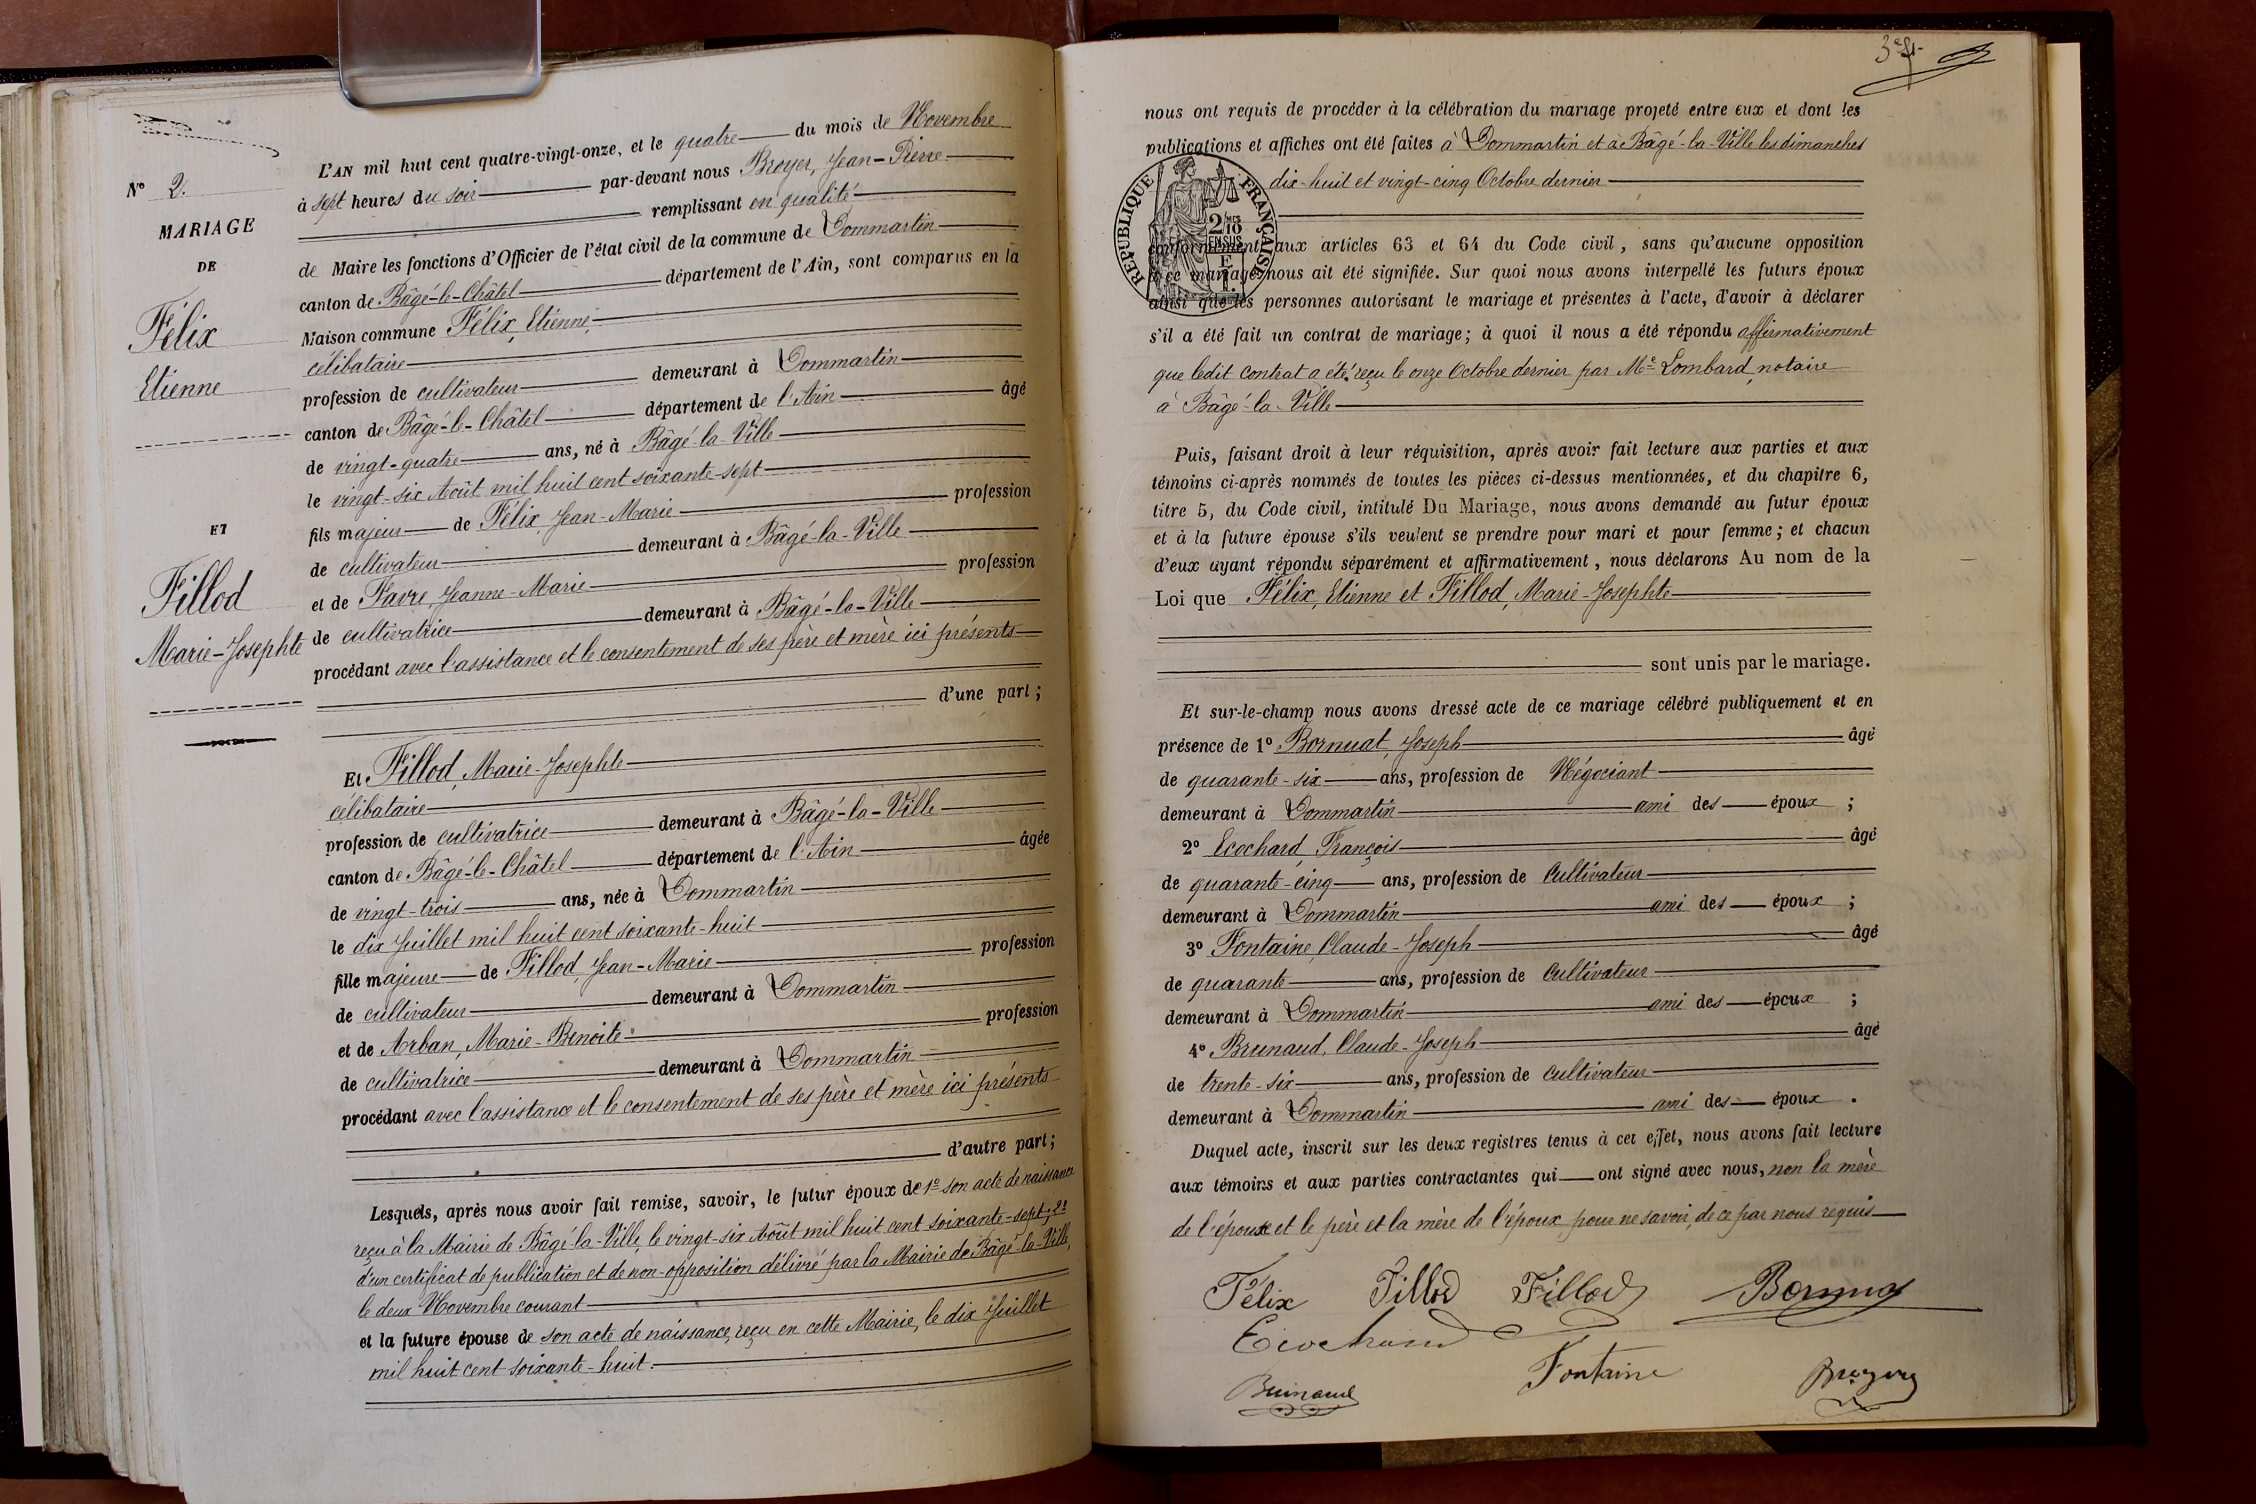 N° 2.
MARIAGE
DE
Félix
Etienne
ET
Fillod
Marie-Josephte
L'AN mil huit cent quatre-vingt-onze, et le quatre du mois de Novembre
à sept heures du soir par-devant nous Broyer, Jean-Pierre
remplissant en qualité
de Maire les fonctions d'Officier de l'état civil de la commune de Dommartin
canton de Bâgé-le-Châtel département de l'Ain, sont comparus en la
Maison commune Félix, Etienne,
célibataire
profession de cultivateur demeurant à Dommartin
canton de Bâgé-le-Châtel département de l'Ain âgé
de vingt-quatre ans, né à Bâgé-la-Ville
le vingt-six Août mil huit cent soixante-sept
fils majeur de Félix, Jean-Marie profession
de cultivateur demeurant à Bâgé-la-Ville
et de Favre, Jeanne-Marie profession
de cultivatrice demeurant à Bâgé-la-Ville
procédant avec l'assistance et le consentement de ses père et mère ici présents
d'une part;
Et Fillod, Marie-Josephte
célibataire
profession de cultivatrice demeurant à Bâgé-la-Ville
canton de Bâgé-le-Châtel département de l'Ain âgée
de vingt-trois ans, née à Dommartin
le dix Juillet mil huit cent soixante-huit
fille majeure de Fillod, Jean-Marie profession
de cultivateur demeurant à Dommartin
et de Arban, Marie-Benoite profession
de cultivatrice demeurant à Dommartin
procédant avec l'assistance et le consentement de ses père et mère ici présents
d'autre part;
Lesquels, après nous avoir fait remise, savoir, le futur époux de 1° son acte de naissance
reçu à la Mairie de Bâgé-la-Ville, le vingt-six Août mil huit cent soixante-sept; 2°
d'un certificat de publication et de non-opposition délivré par la Mairie de Bâgé-la-Ville,
le deux Novembre courant
et la future épouse de son acte de naissance, reçu en cette Mairie, le dix Juillet
mil huit cent soixante-huit.
nous ont requis de procéder à la célébration du mariage projeté entre eux et dont les
publications et affiches ont été faites à Dommartin et à Bâgé-la-Ville les dimanches
dix-huit et vingt-cinq Octobre dernier
RÉPUBLIQUE FRANÇAISE
2/10
EN SUS
conformément aux articles 63 et 64 du Code civil, sans qu'aucune opposition
à ce mariage nous ait été signifiée. Sur quoi nous avons interpellé les futurs époux
ainsi que les personnes autorisant le mariage et présentes à l'acte, d'avoir à déclarer
s'il a été fait un contrat de mariage; à quoi il nous a été répondu affirmativement
que ledit contrat a été reçu le onze Octobre dernier par Me Lombard, notaire
à Bâgé-la-Ville
Puis, faisant droit à leur réquisition, après avoir fait lecture aux parties et aux
témoins ci-après nommés de toutes les pièces ci-dessus mentionnées, et du chapitre 6,
titre 5, du Code civil, intitulé Du Mariage, nous avons demandé au futur époux
et à la future épouse s'ils veulent se prendre pour mari et pour femme; et chacun
d'eux ayant répondu séparément et affirmativement, nous déclarons Au nom de la
Loi que Félix, Etienne et Fillod, Marie-Josephte
sont unis par le mariage.
Et sur-le-champ nous avons dressé acte de ce mariage célébré publiquement et en
présence de 1° Bornuat, Joseph âgé
de quarante-six ans, profession de Négociant
demeurant à Dommartin ami des époux ;
2° Ecochard, François âgé
de quarante-cinq ans, profession de Cultivateur
demeurant à Dommartin ami des époux ;
3° Fontaine, Claude-Joseph âgé
de quarante ans, profession de Cultivateur
demeurant à Dommartin ami des époux ;
4° Brunaud, Claude-Joseph âgé
de trente-six ans, profession de Cultivateur
demeurant à Dommartin ami des époux .
Duquel acte, inscrit sur les deux registres tenus à cet effet, nous avons fait lecture
aux témoins et aux parties contractantes qui ont signé avec nous, non la mère
de l'épouse et le père et la mère de l'époux pour ne savoir, de ce par nous requis
Félix Fillod Fillod
Fontaine